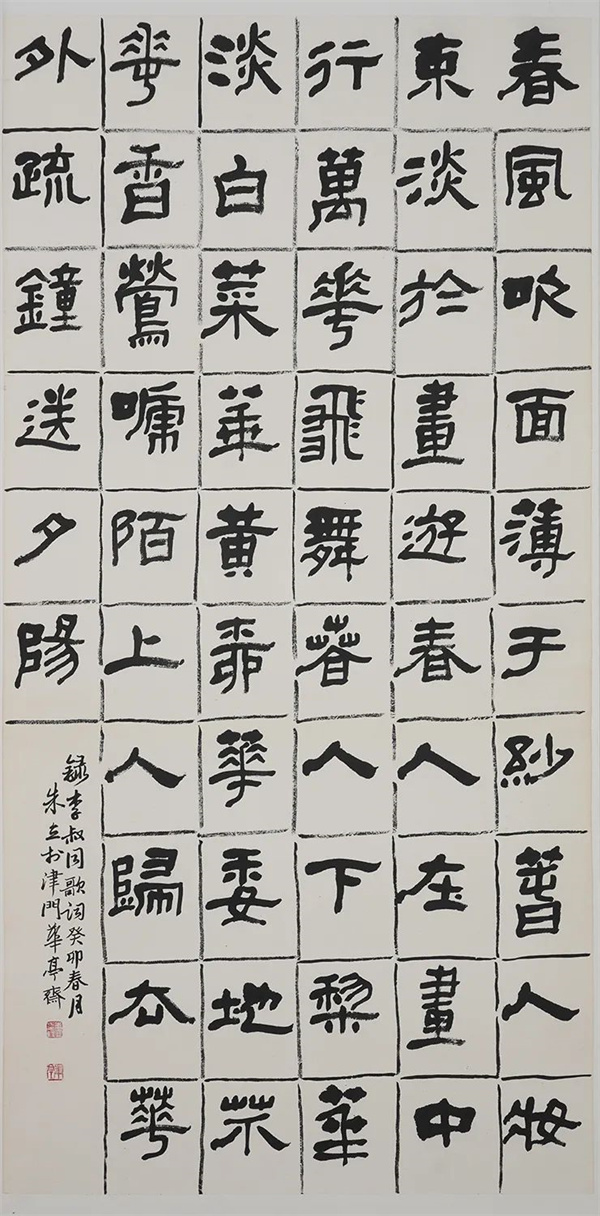 春風吹面薄于紗萅人妝
束淡於畫遊春人在畫中
行萬華飛舞萅人下梨華
淡白菜華黃桺華委地芥
華香鶯嗁陌上人歸去華
外疏鐘送夕陽
錄李叔同歌詞癸卯春月
朱立於津門華亭齋